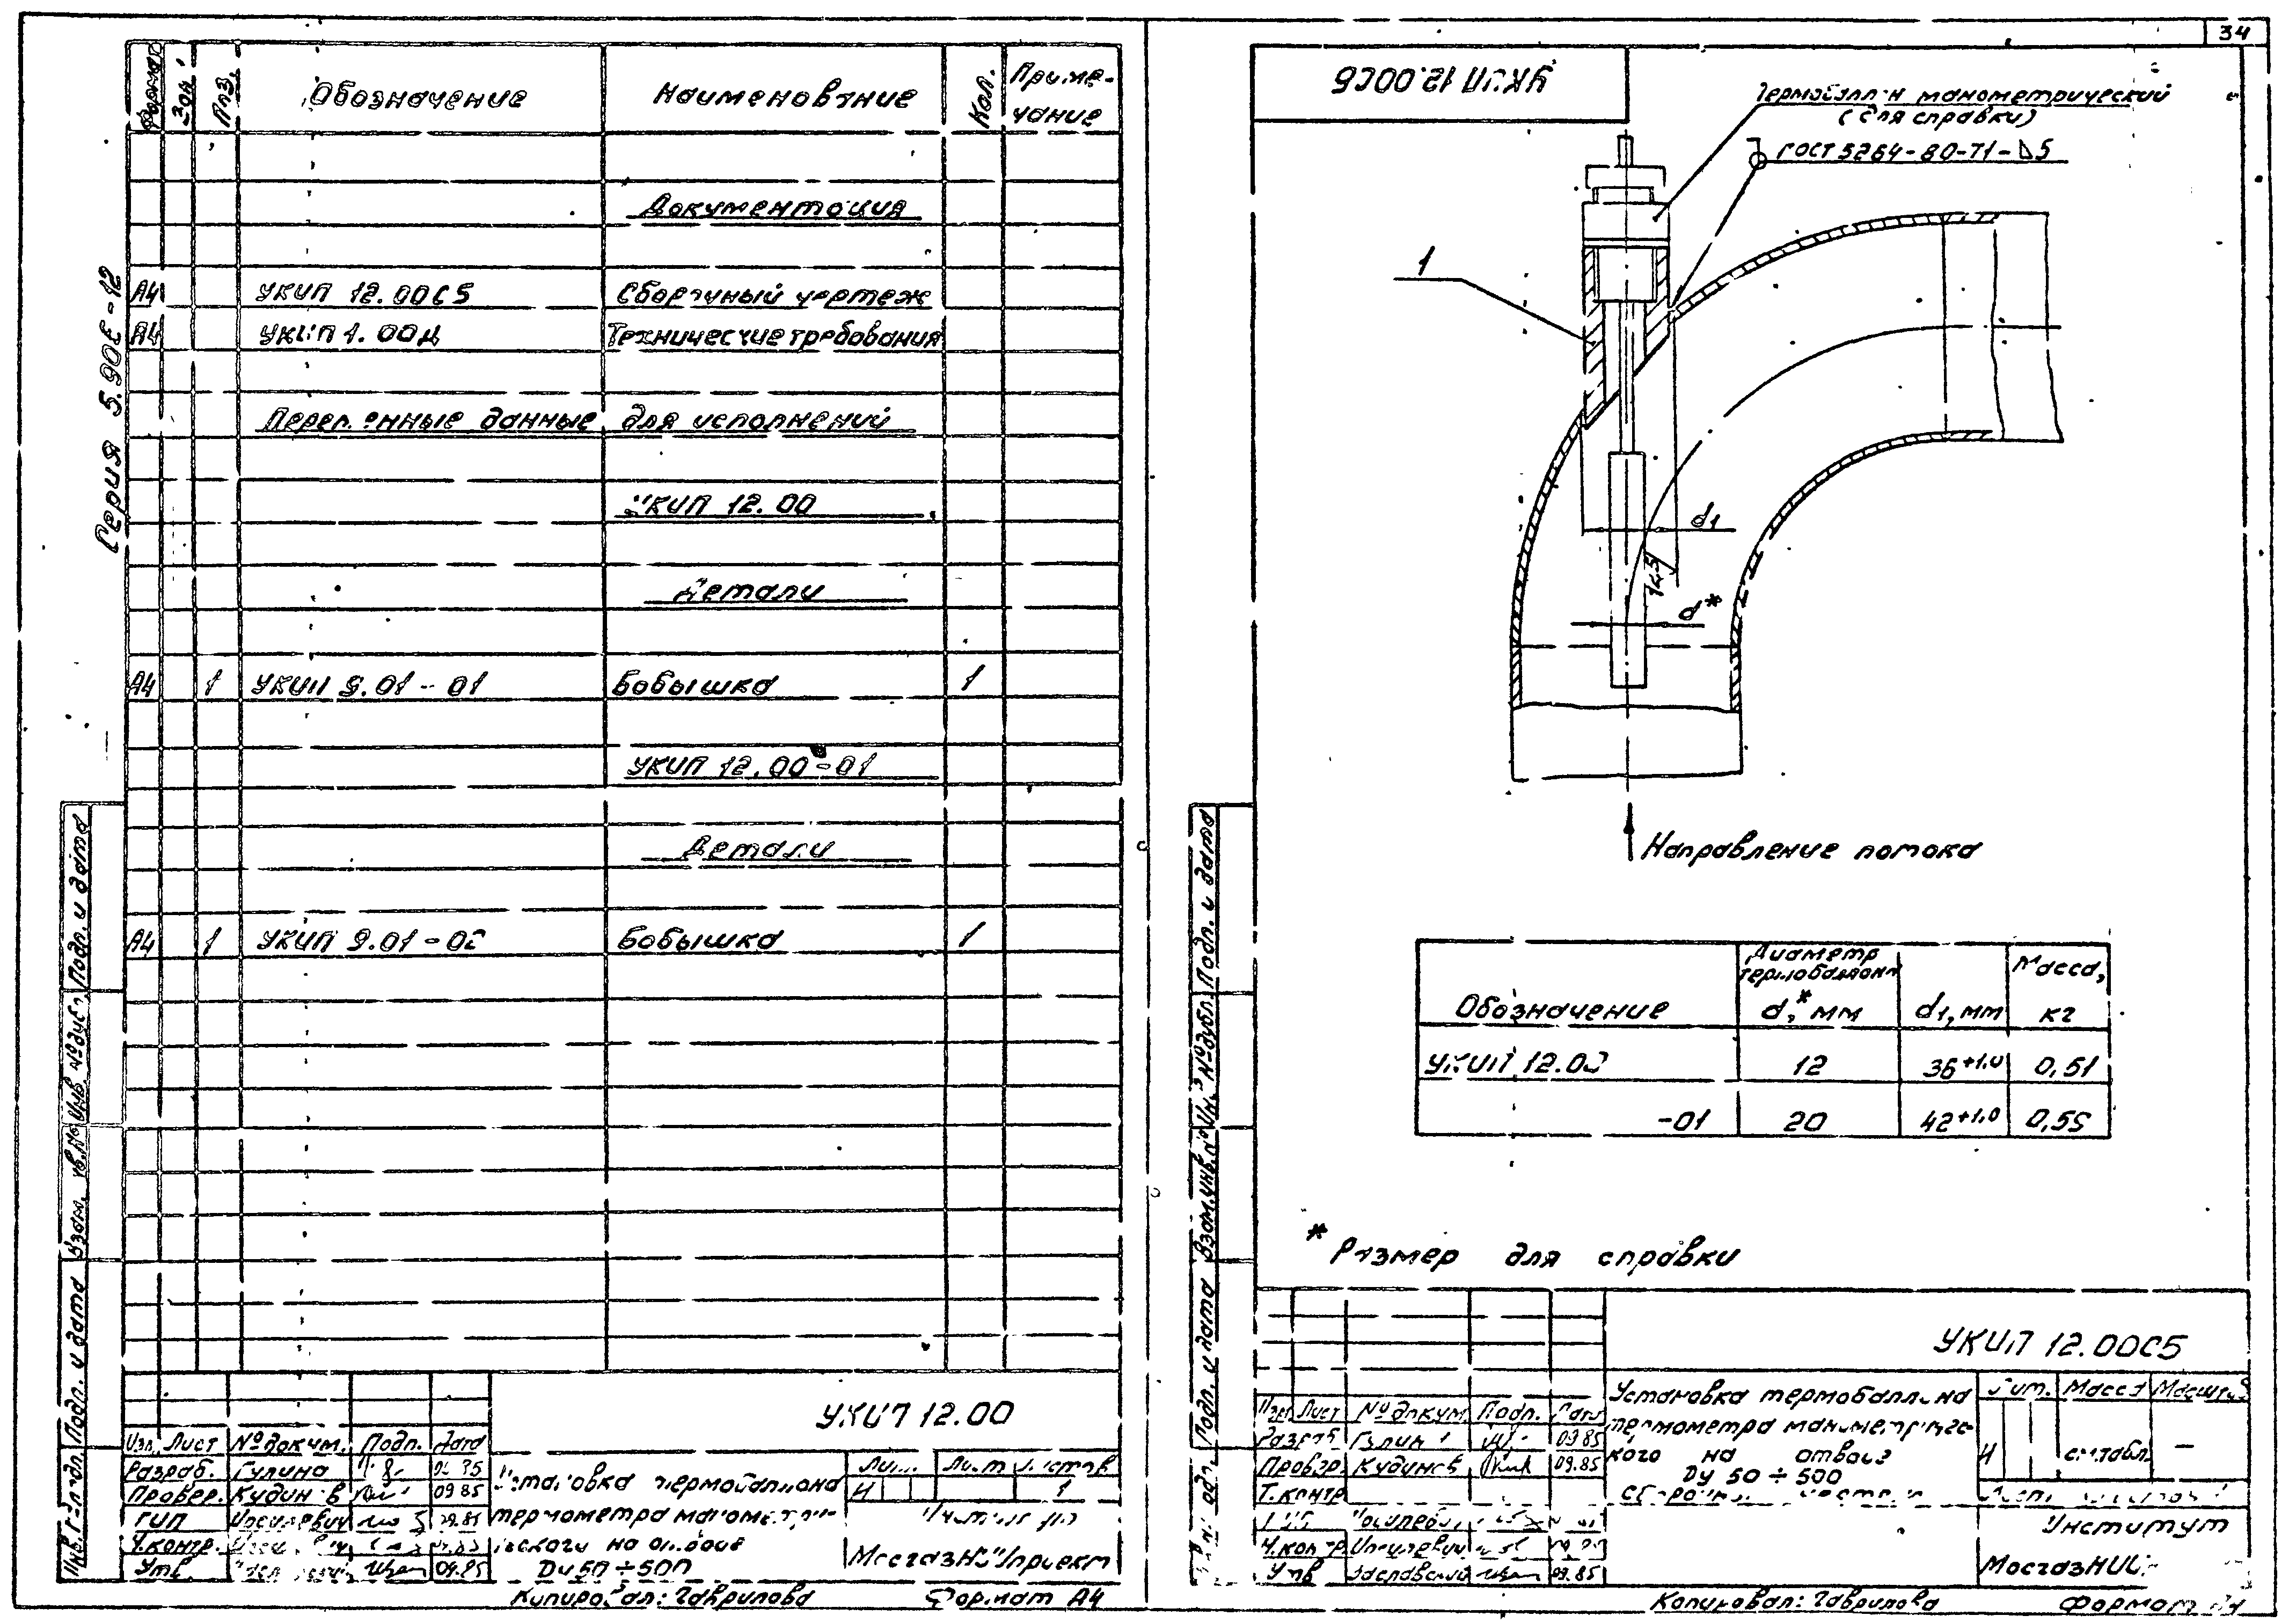 34
Серия 5.905-12
Формат Зон. Поз. Обозначение Наименование Кол. Приме-
чание
Документация
А4 УКИП 12.00СБ Сборочный чертеж
А4 УКИП 1.00Д Технические требования
Переменные данные для исполнений
УКИП 12.00
Детали
А4 1 УКИП 9.01-01 Бобышка 1
УКИП 12.00-01
Детали
А4 1 УКИП 9.01-02 Бобышка 1
Инв.№ подл. Подп. и дата Взам. инв.№ Инв.№ дубл. Подп. и дата
УКИП 12.00
Изм. Лист № докум. Подп. Дата
Разраб. Гулина
Провер. Кудинов 09.85
ГИП 09.85
Н.контр.
Утв. 09.85
Установка термобаллона
термометра манометриче-
ского на отводе
Ду 50÷500
Лит. Лист Листов
И 1
Институт
МосгазНИИпроект
Копировал: Гаврилова Формат А4
УКИП 12.00СБ
Термобаллон манометрический
(для справки)
ГОСТ 5264-80-Т1-⊿5
1
d1
12,5
d*
Направление потока
Обозначение Диаметр термобаллона d,* мм d1, мм Масса, кг
УКИП 12.00 12 36+1.0 0,51
-01 20 42+1.0 0,55
* Размер для справки
Подп. и дата Взам.инв.№ Инв.№ дубл. Подп. и дата
УКИП 12.00СБ
Изм. Лист № докум. Подп. Дата
Разраб. Гулина 09.85
Провер. Кудинов 09.85
Т.контр.
ГИП
Н.контр.
Утв. Заславский 09.85
Установка термобаллона
термометра манометриче-
кого на отводе
Ду 50÷500
Сборочный чертеж
Лит. Масса Масштаб
И см.табл. —
Лист Листов 1
Институт
МосгазНИИ
Копировал: Гаврилова Формат А4